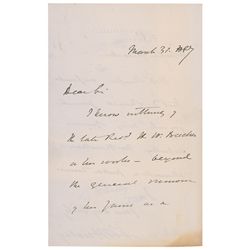 March 31. 1887
Dear Sir
I know nothing of
the late Revd H. W. Beecher
or his works — beyond
the general rumour
of his fame as a